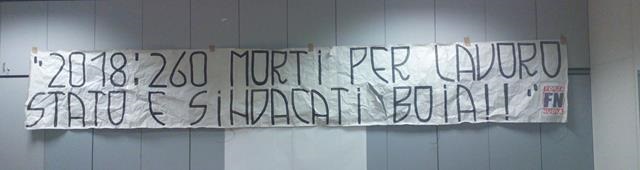 "2018:260 MORTI PER LAVORO
STATO E SINDACATI BOIA!!"
FORZA
FN
NUOVA